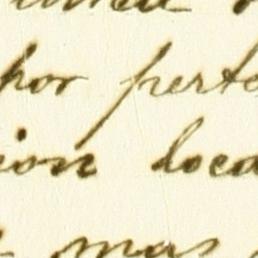 por perte
ion loca
mas